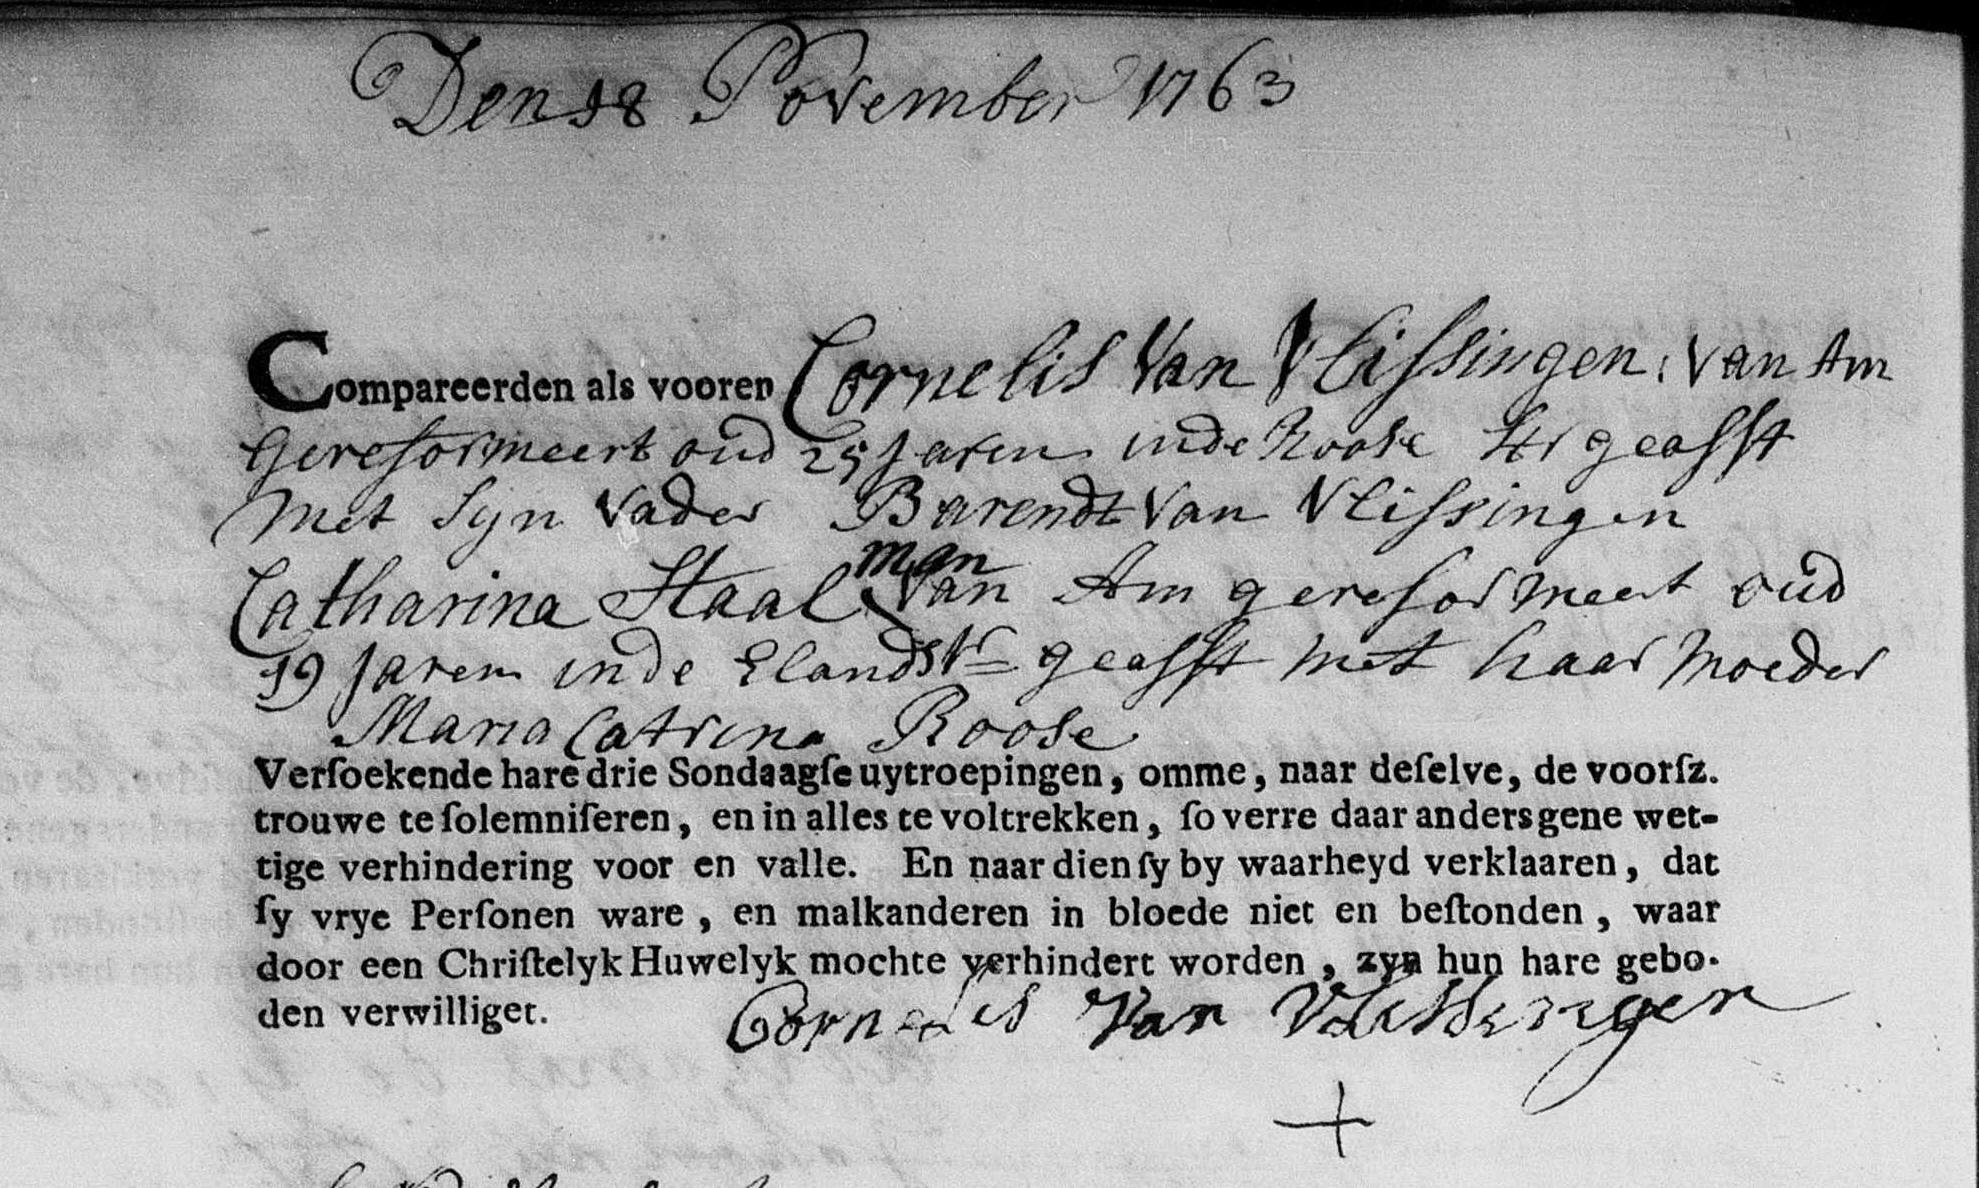 Den 18 November 1763
Compareerden als vooren Cornelis Van Vlissingen, Van Am
gereformeert oud 25 Jaren inde Roose str geasst
Met Syn Vader Barendt Van Vlissingen
man
Catharina Staal Van Am gereformeert oud
19 Jaren inde Elandstr geasst Met haar Moeder
Maria Catrina Roose
Verſoekende hare drie Sondaagſe uytroepingen, omme, naar deſelve, de voorſz.
trouwe te ſolemniſeren, en in alles te voltrekken, ſo verre daar anders gene wet-
tige verhindering voor en valle. En naar dien ſy by waarheyd verklaaren, dat
ſy vrye Perſonen ware, en malkanderen in bloede niet en beſtonden, waar
door een Chriſtelyk Huwelyk mochte verhindert worden, zyn hun hare gebo-
den verwilliget. Cornelis Van Vlissingen
+